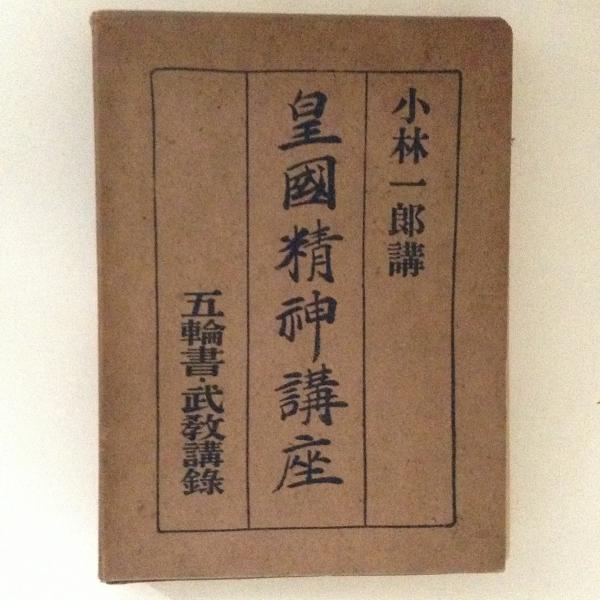 小林一郎講
皇國精神講座
五輪書・武教講錄